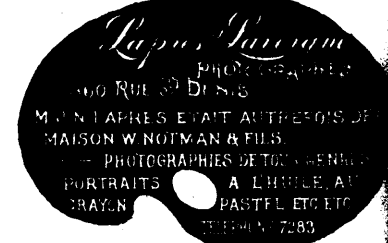 Lapres Lavergne
PHOTOGRAPHES
360 RUE St DENIS
M. J. N. LAPRES ETAIT AUTREFOIS DE
MAISON W. NOTMAN & FILS.
PHOTOGRAPHIES DE TOUS GENRES
PORTRAITS A L'HUILE, AU
CRAYON PASTEL ETC ETC
TELEPHONE 7283